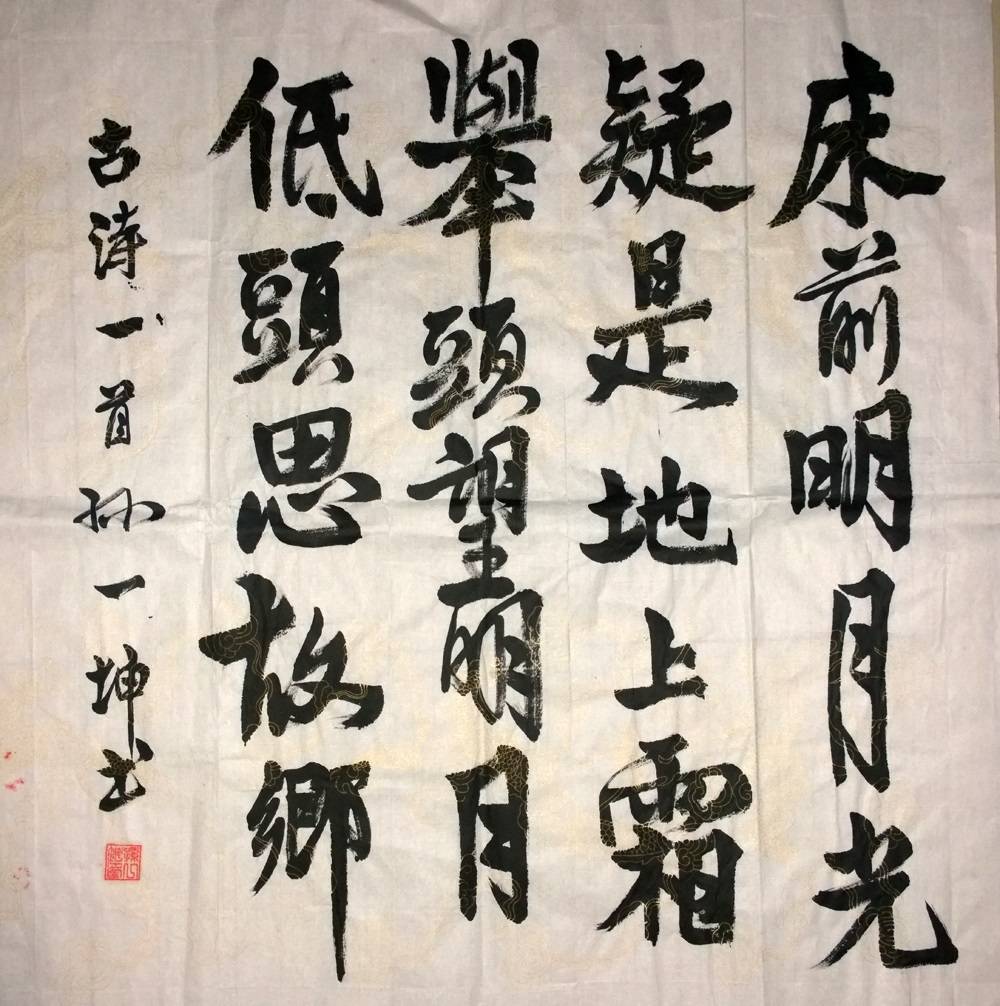 床前明月光
疑是地上霜
舉頭望明月
低頭思故鄉
古诗一首孙一坤书